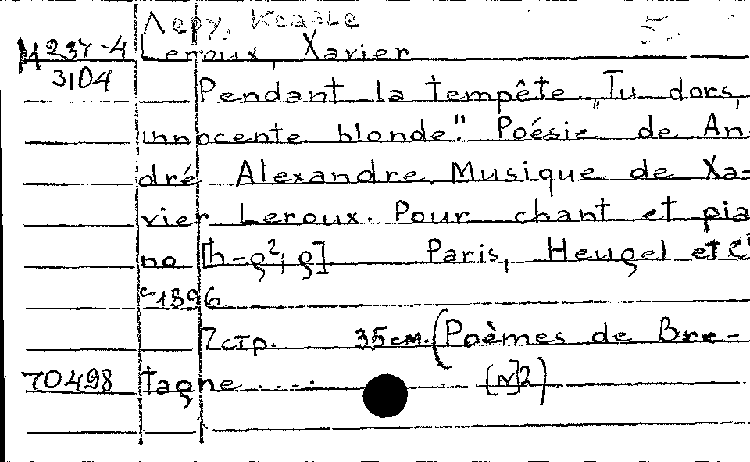 Леру, Ксавье
М 237-4 Leroux, Xavier
3104 Pendant la tempête „Tu dors,
innocente blonde". Poésie de An-
dré Alexandre. Musique de Xa-
vier Leroux. Pour chant et pia-
no [h-g²; g] Paris, Heugel et Cⁱ
c 1896
7 стр. 35 см. (Poèmes de Bre-
70498 tagne .... [N]2)